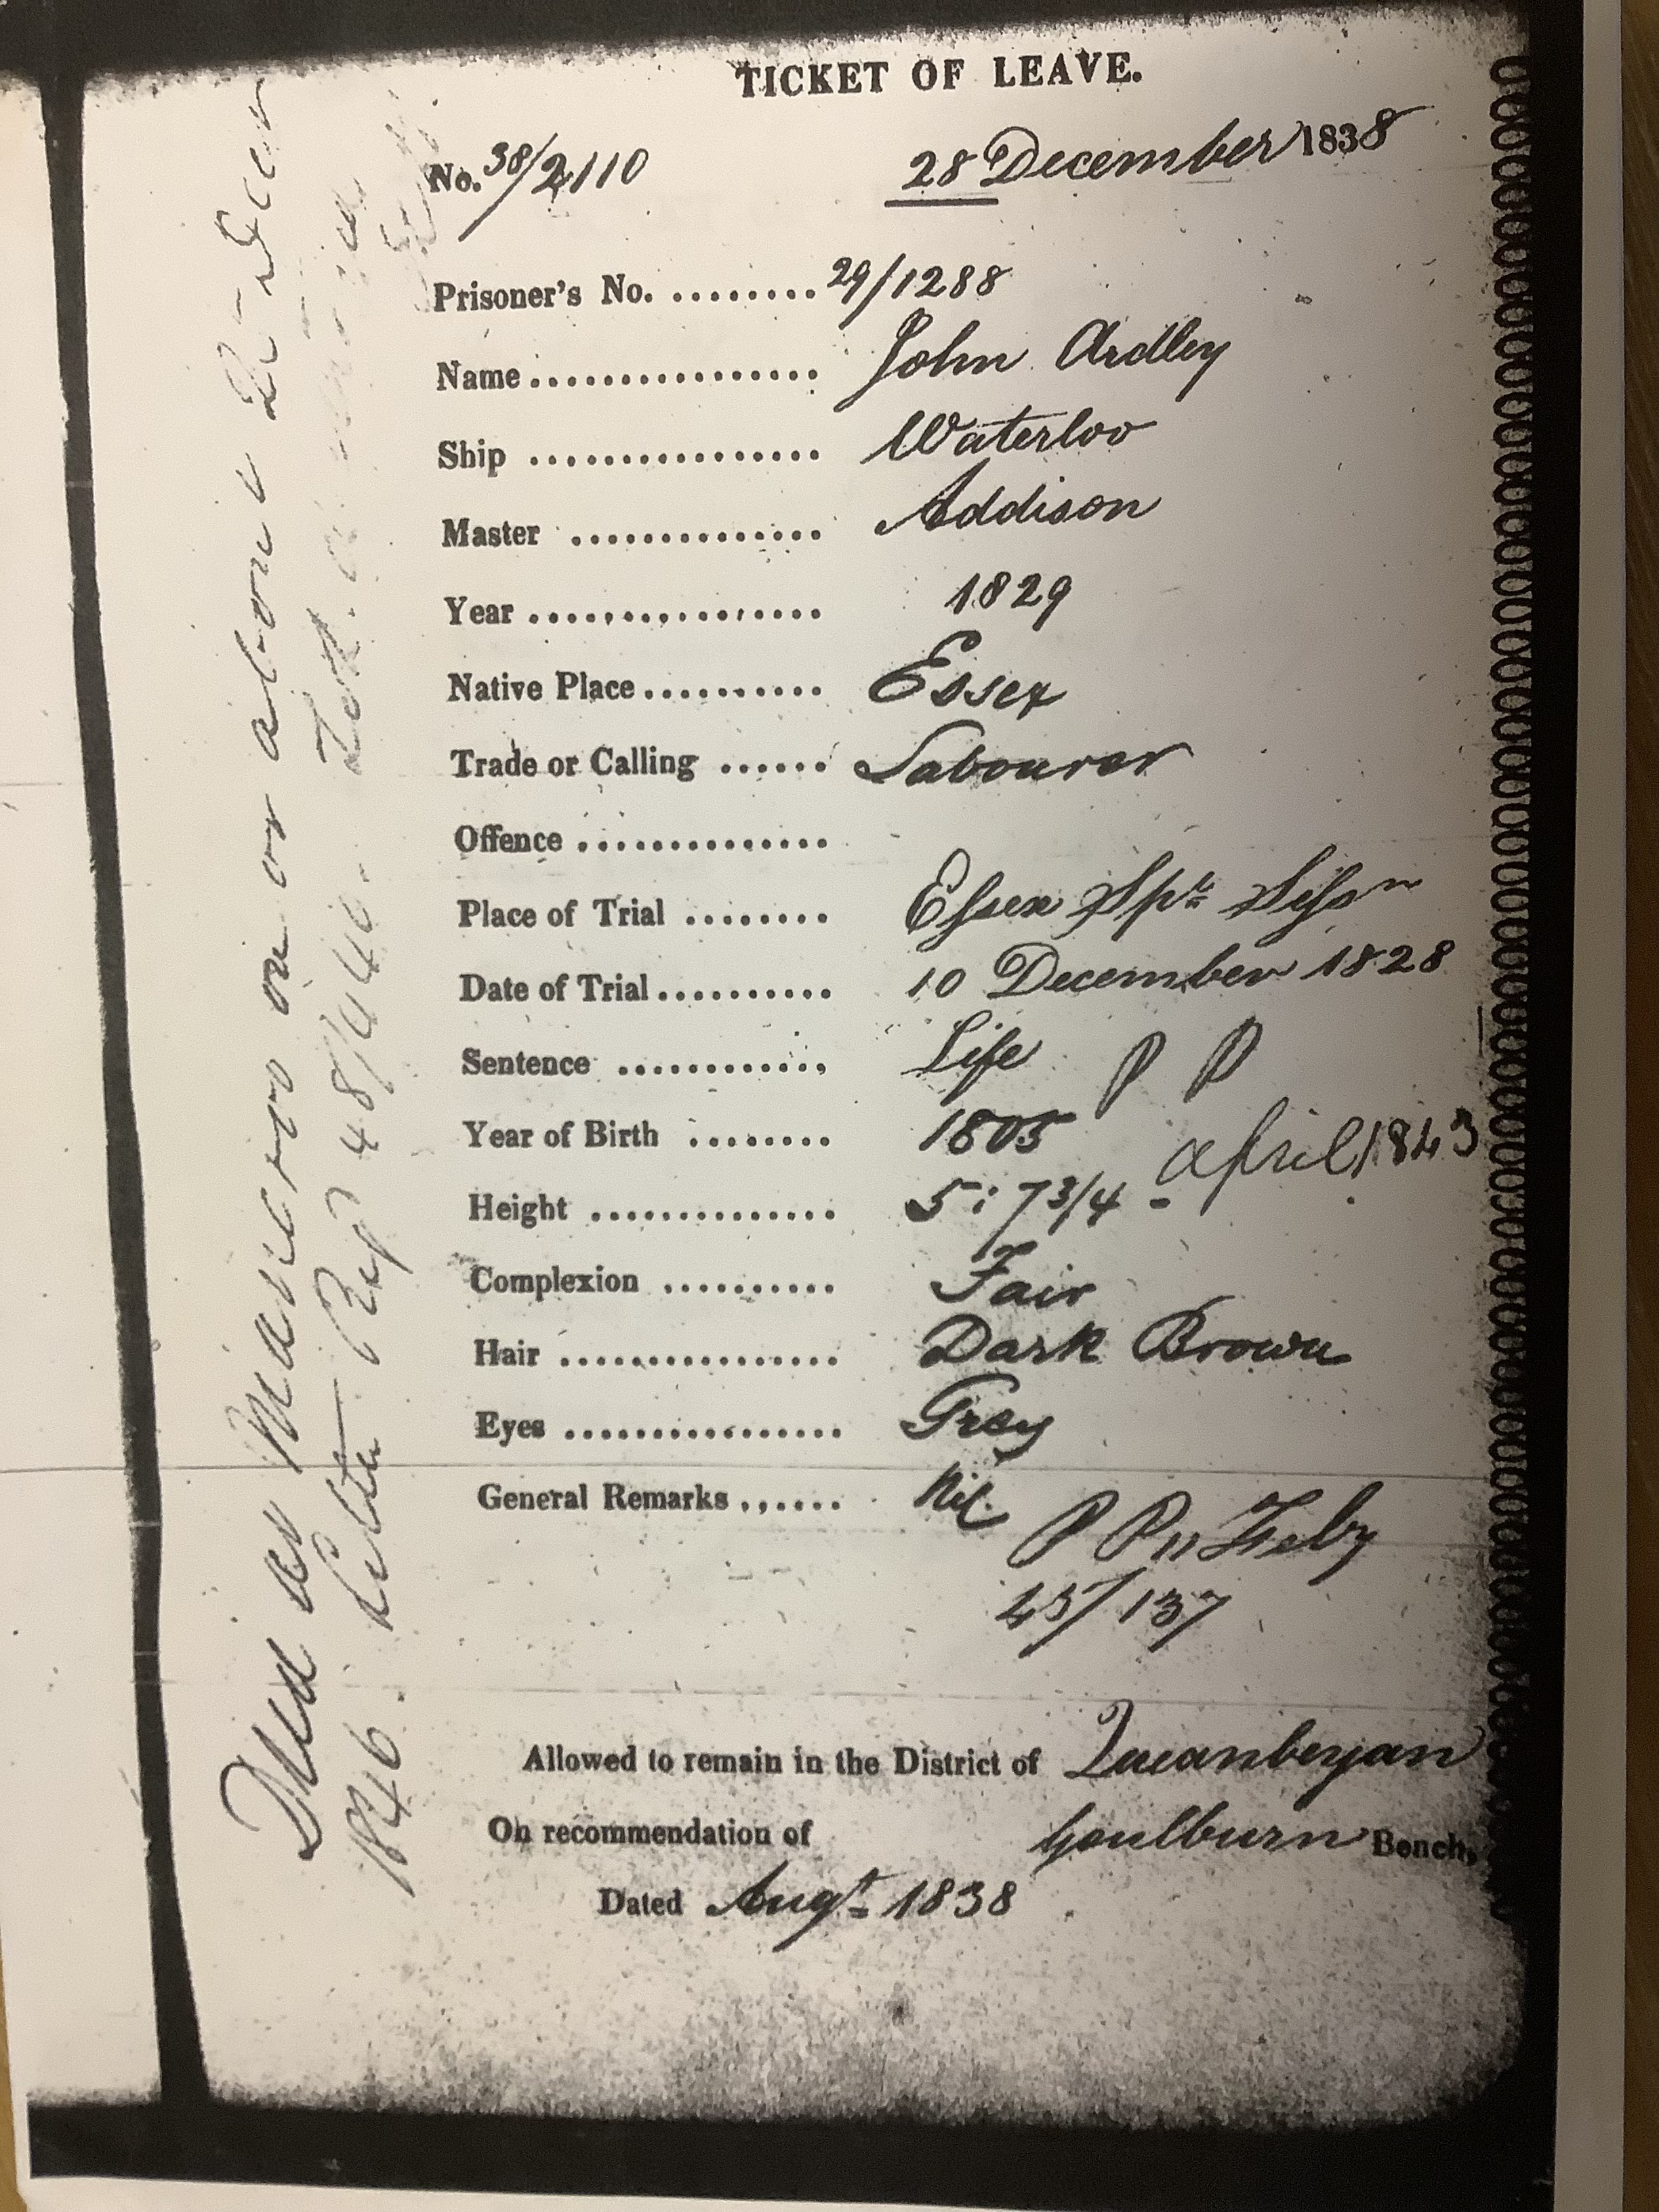 TICKET OF LEAVE.
No. 38/2110 28 December 1838
Prisoner's No. ........ 29/1288
Name ................ John Ardley
Ship ................ Waterloo
Master .............. Addison
Year ................ 1829
Native Place .......... Essex
Trade or Calling ...... Labourer
Offence ..............
Place of Trial ........ Essex Spl Sessn
Date of Trial .......... 10 December 1828
Sentence ............ Life P P
Year of Birth ........ 1805 April 1843
Height .............. 5: 7 3/4 -
Complexion .......... Fair
Hair ................ Dark Brown
Eyes ................ Grey
General Remarks ...... Nil.
P P
/137
Allowed to remain in the District of Queanbeyan
On recommendation of Goulburn Bench,
Dated Augt 1838
Died at on or about
1846. Letter 48/